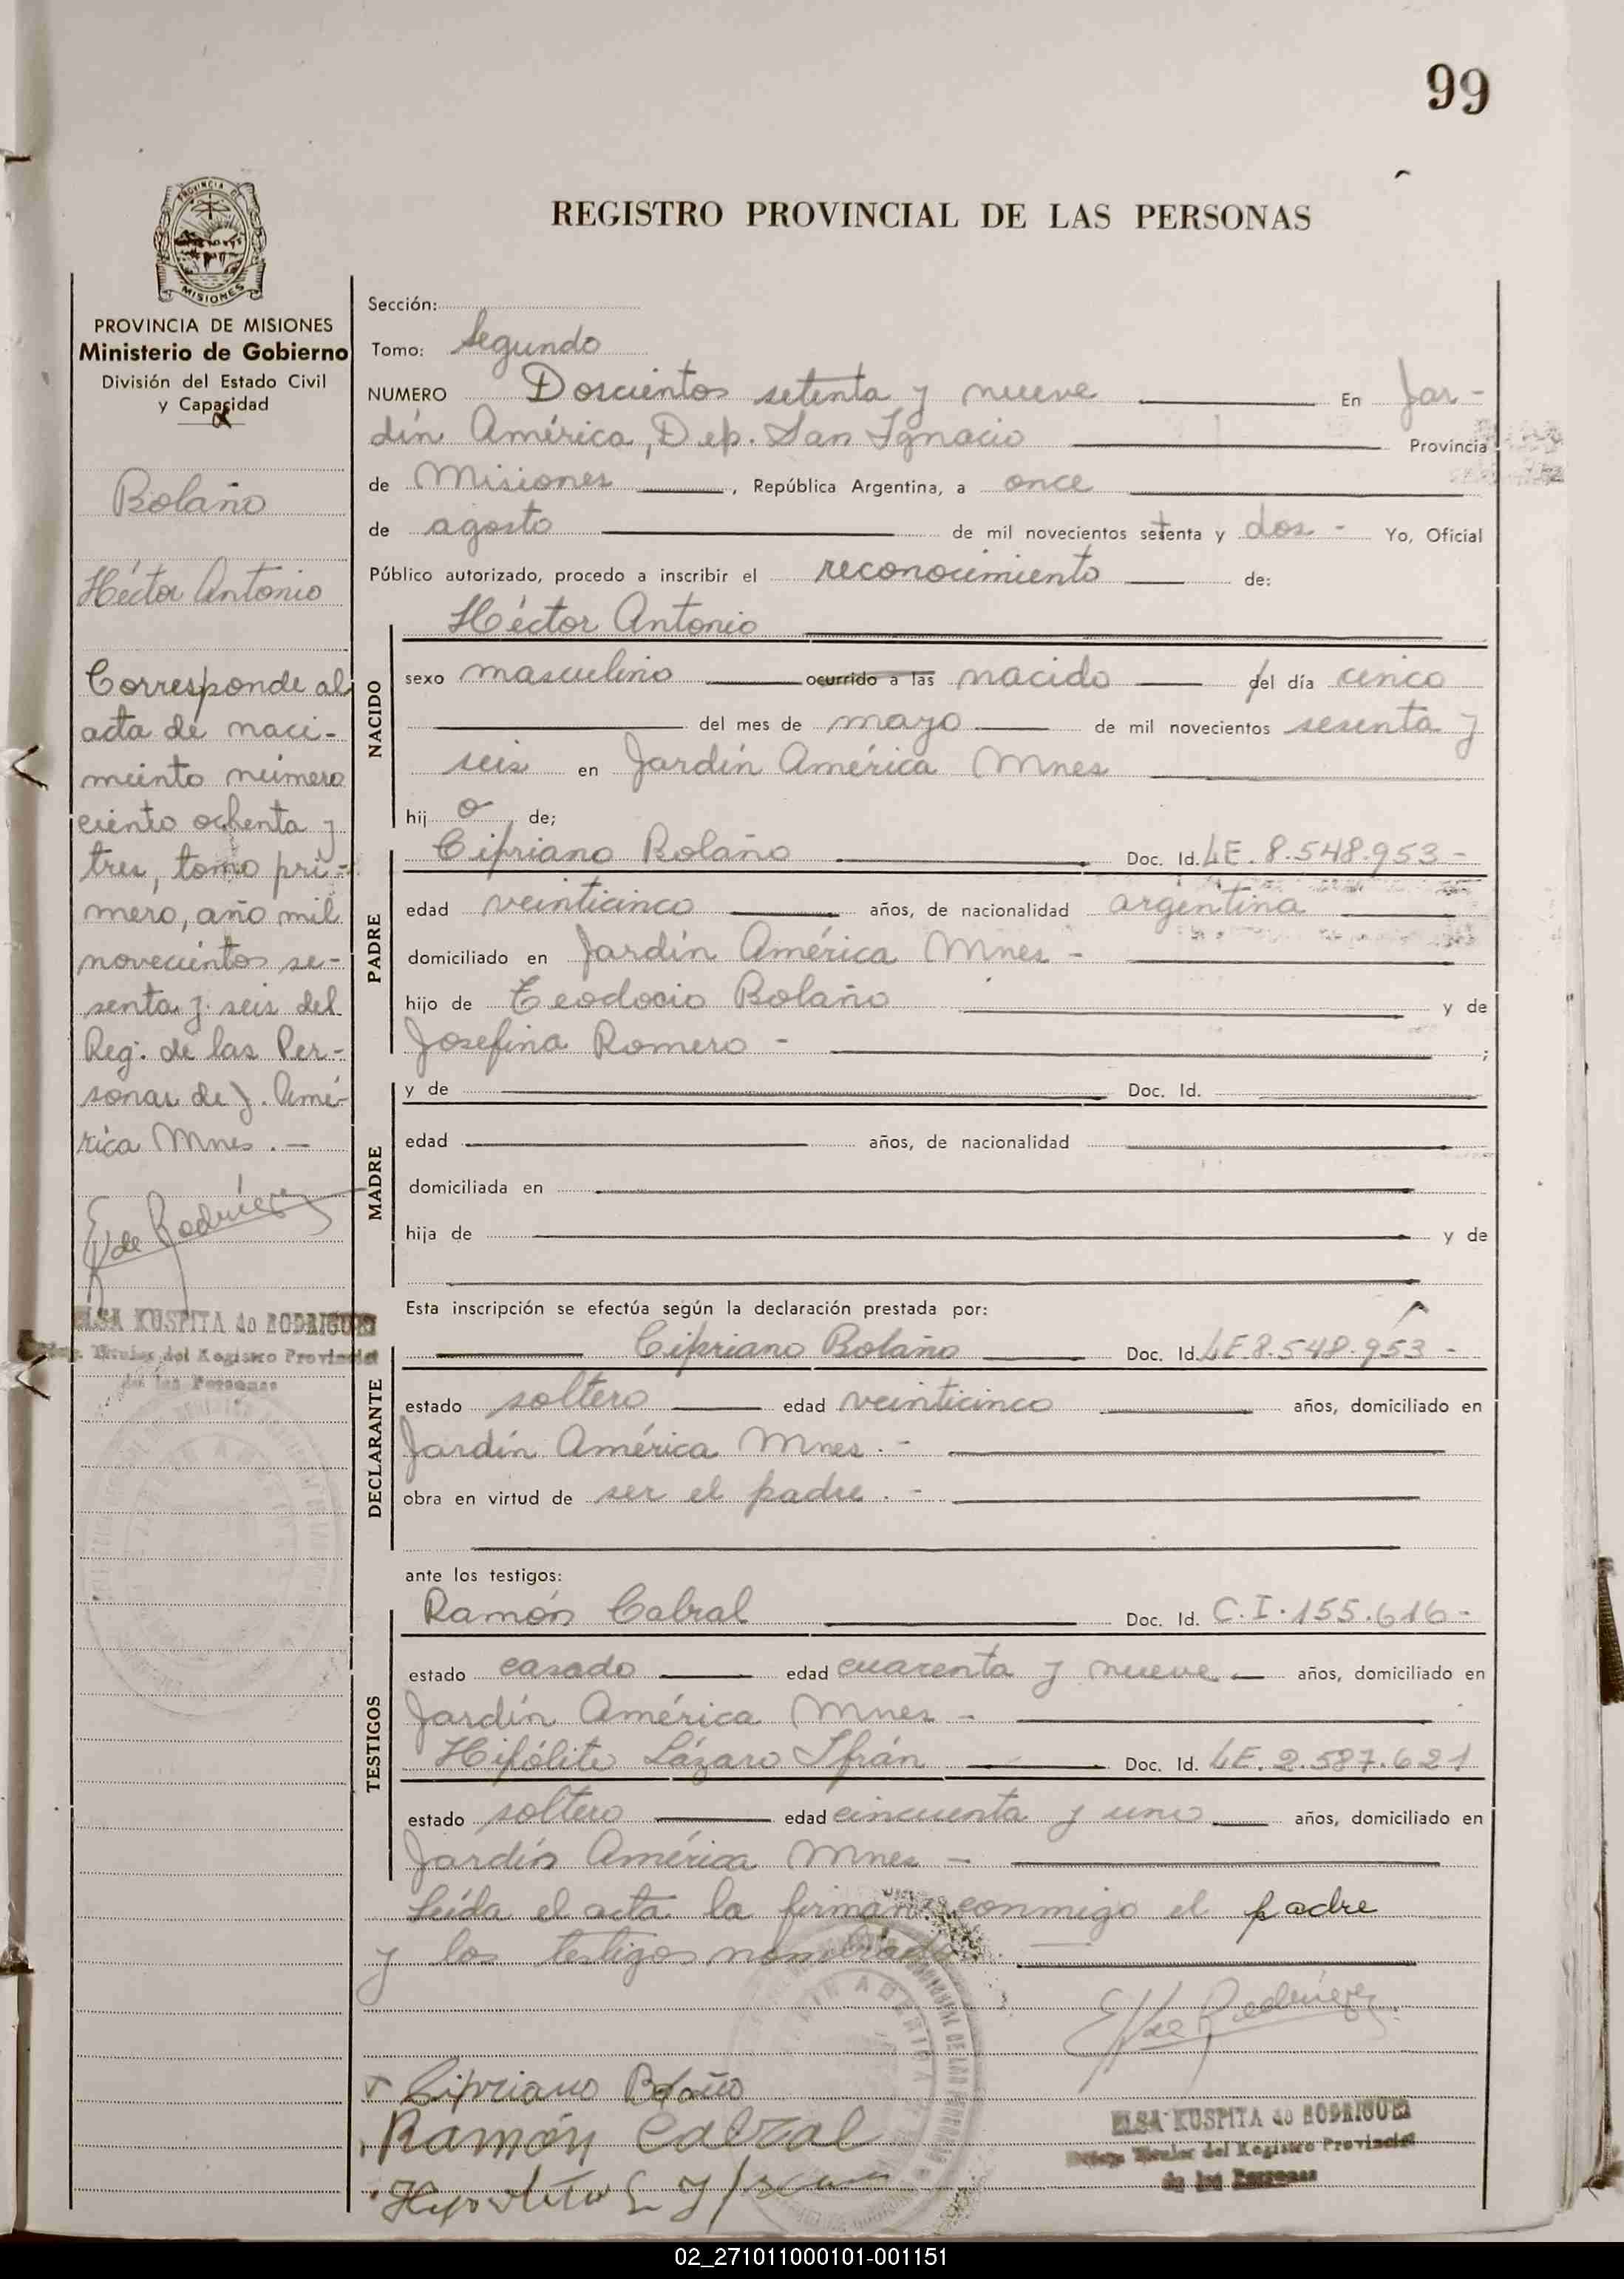 99
REGISTRO PROVINCIAL DE LAS PERSONAS
PROVINCIA DE
MISIONES
PROVINCIA DE MISIONES
Ministerio de Gobierno
División del Estado Civil
y Capacidad
Bolaño
Héctor Antonio
Corresponde al
acta de naci-
miento número
ciento ochenta y
tres, tomo pri-
mero, año mil
novecientos se-
senta y seis del
Reg. de las Per-
sonas de J. Amé-
rica Mnes. -
E K de Rodríguez
ELSA KUSPITA de RODRIGUEZ
Titular del Registro Provincial
de las Personas
Sección:
Tomo: Segundo
NUMERO Doscientos setenta y nueve En Jar-
dín América, Dep. San Ignacio Provincia
de Misiones, República Argentina, a once
de agosto de mil novecientos setenta y dos - Yo, Oficial
Público autorizado, procedo a inscribir el reconocimiento de:
Héctor Antonio
NACIDO
sexo masculino ocurrido a las nacido del día cinco
del mes de mayo de mil novecientos sesenta y
seis en Jardín América Mnes
hij o de;
PADRE
Cipriano Bolaño Doc. Id. LE. 8.548.953 -
edad veinticinco años, de nacionalidad argentina
domiciliado en Jardín América Mnes -
hijo de Teodocio Bolaño y de
Josefina Romero - ;
MADRE
y de Doc. Id.
edad años, de nacionalidad
domiciliada en
hija de y de
Esta inscripción se efectúa según la declaración prestada por:
DECLARANTE
Cipriano Bolaño Doc. Id. LE.8.548.953 -
estado soltero edad veinticinco años, domiciliado en
Jardín América Mnes. -
obra en virtud de ser el padre. -
ante los testigos:
TESTIGOS
Ramón Cabral Doc. Id. C.I. 155.616 -
estado casado edad cuarenta y nueve años, domiciliado en
Jardín América Mnes -
Hipólito Lázaro Ifrán Doc. Id. LE. 2.587.621
estado soltero edad cincuenta y uno años, domiciliado en
Jardín América Mnes -
Leída el acta la firman conmigo el padre
y los testigos nombrados.
E K de Rodríguez
Cipriano Bolaño
Ramón Cabral
Hipólito L Ifran
ELSA KUSPITA de RODRIGUEZ
Titular del Registro Provincial
de las Personas
02_271011000101-001151